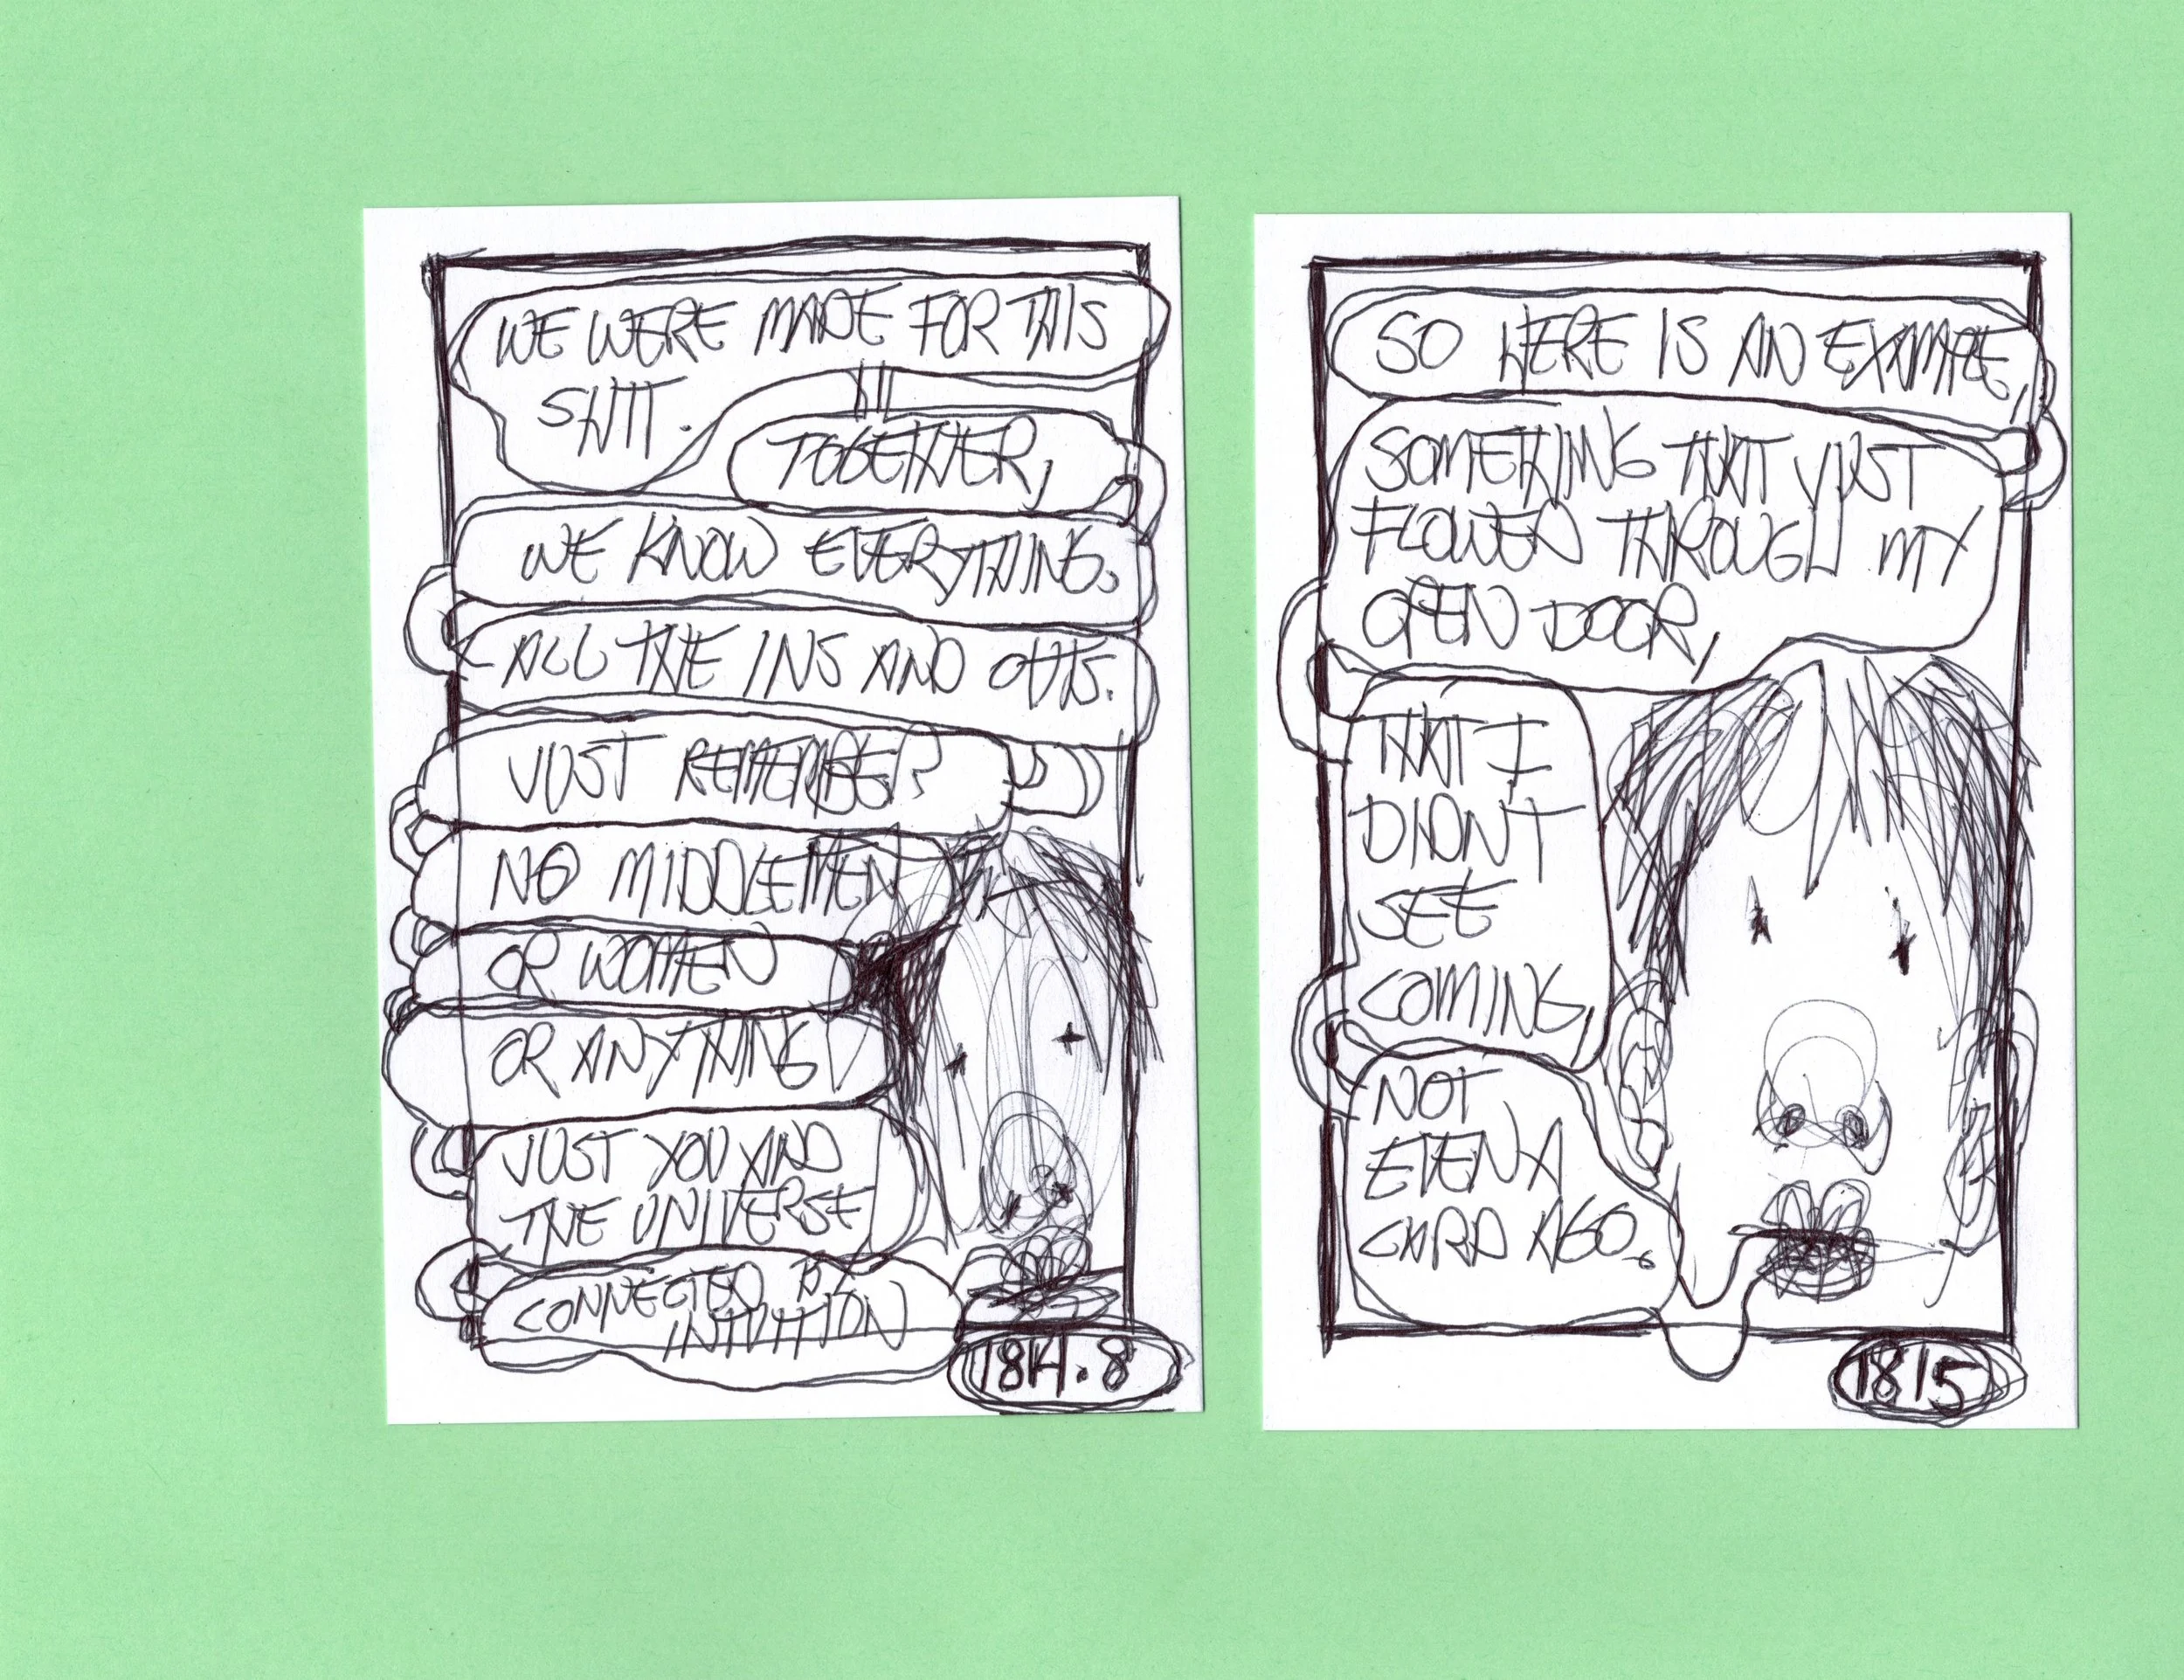 WE WERE MADE FOR THIS
SHIT.
TOGETHER,
WE KNOW EVERYTHING.
ALL THE INS AND OUTS.
JUST REMEMBER
NO MIDDLEMEN
OR WOMEN
OR ANYTHING
JUST YOU AND
THE UNIVERSE
CONNECTED BY
INTUITION
1814.8
SO HERE IS AN EXAMPLE,
SOMETHING THAT JUST
FLOWED THROUGH MY
OPEN DOOR,
THAT I
DIDNT
SEE
COMING,
NOT
EVEN A
CARD AGO.
1815